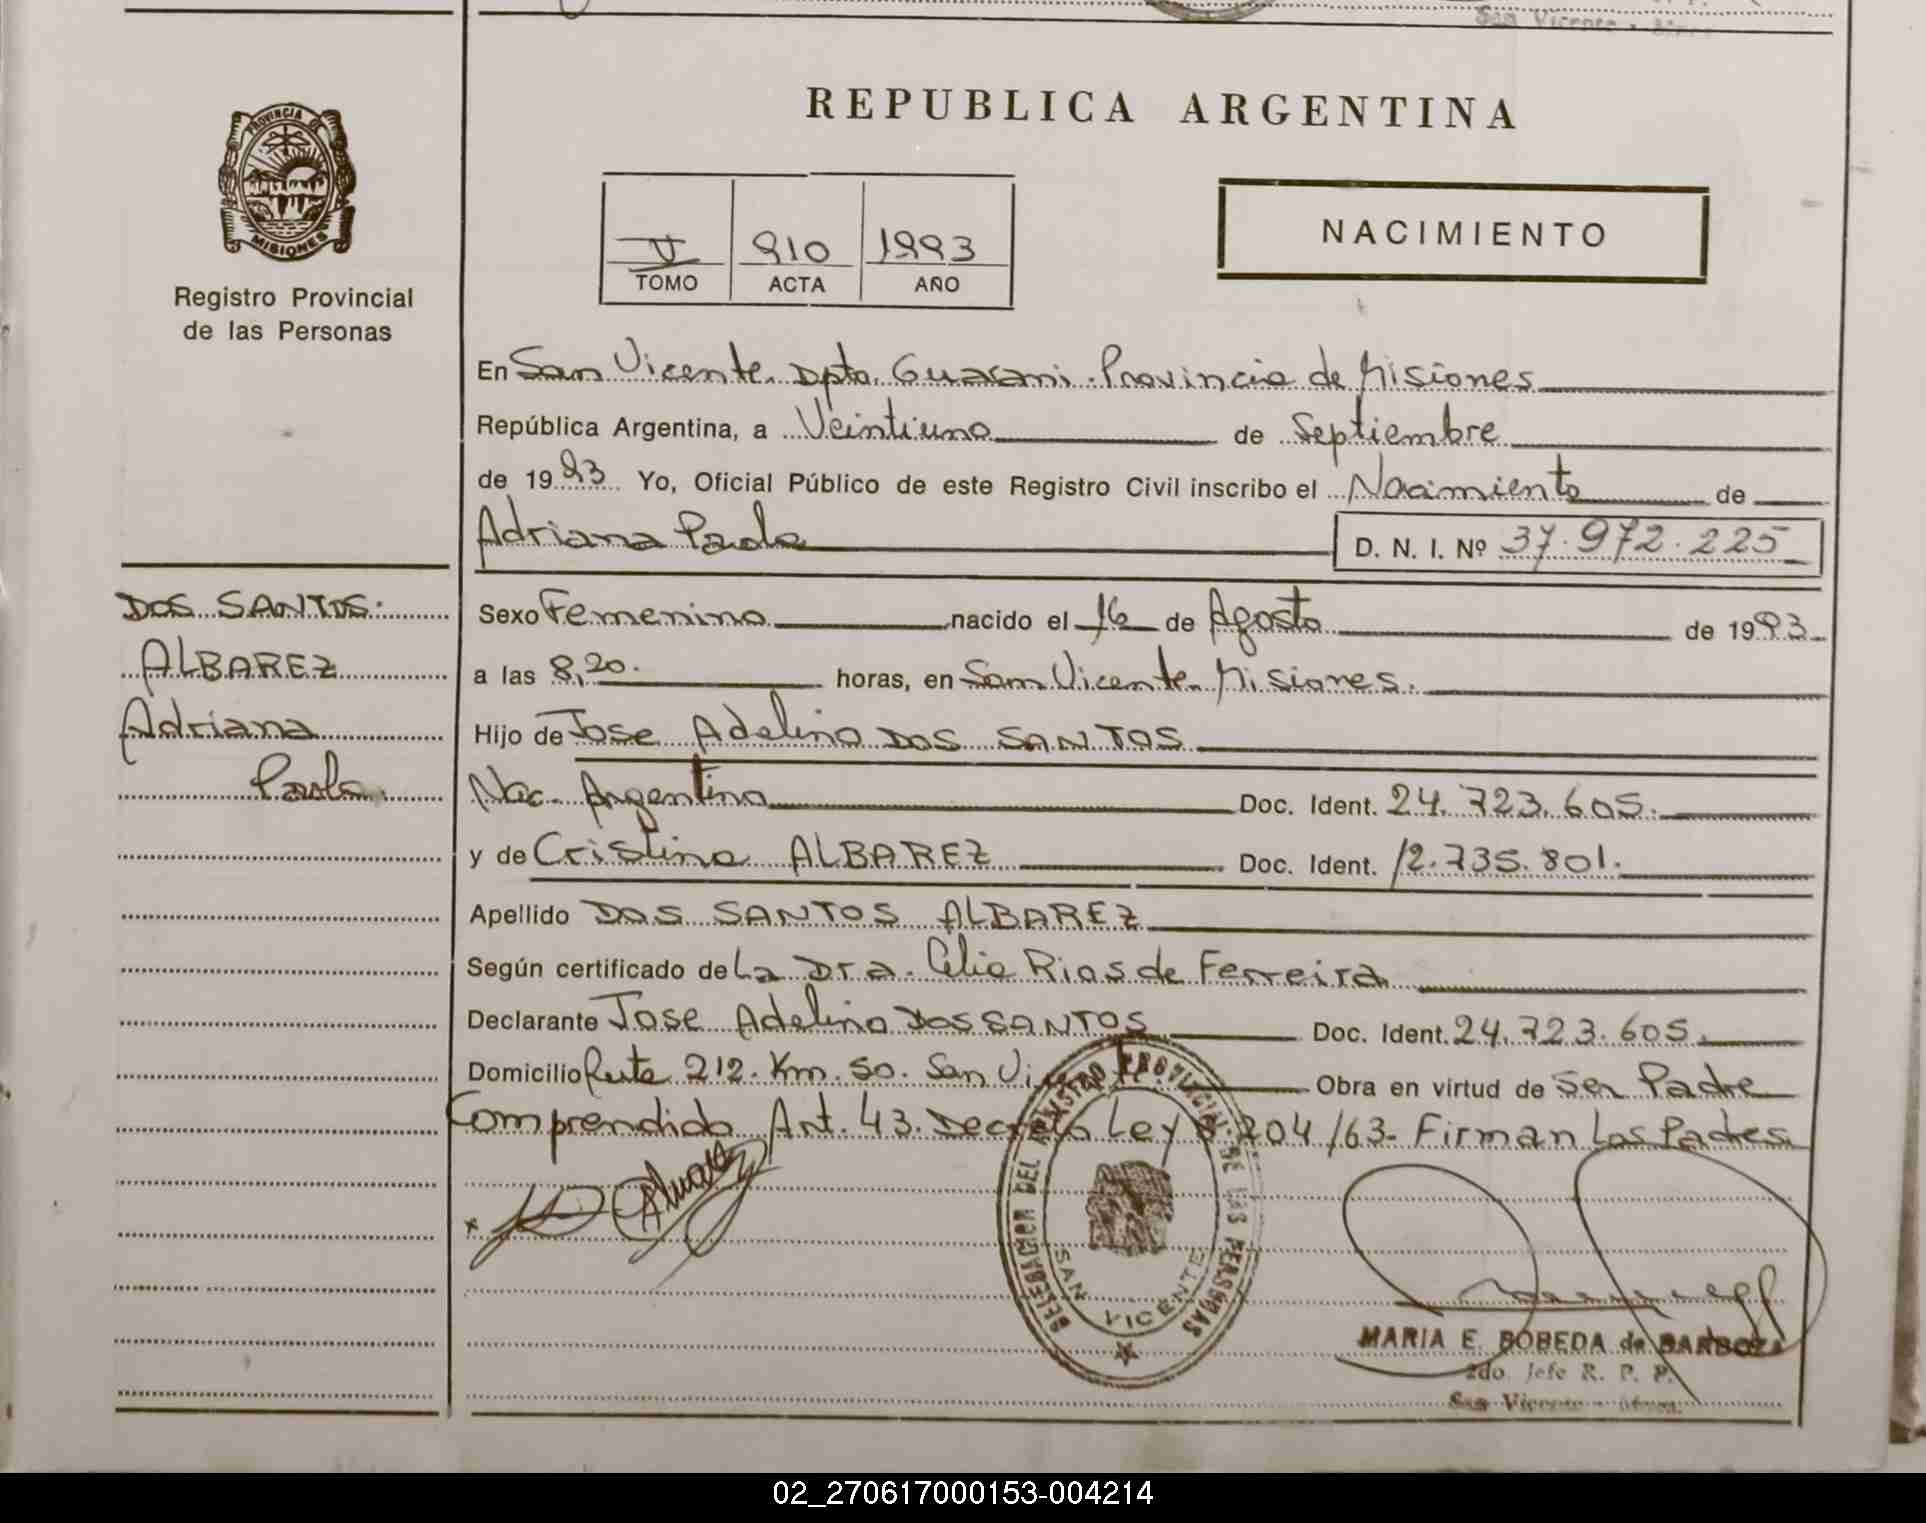 San Vicente
REPUBLICA ARGENTINA
PROVINCIA DE
MISIONES
Registro Provincial
de las Personas
V 910 1993
TOMO ACTA AÑO
NACIMIENTO
En San Vicente. Dpto. Guarani. Provincia de Misiones
República Argentina, a Veintiuno de Septiembre
de 1993 Yo, Oficial Público de este Registro Civil inscribo el Nacimiento de
Adriana Paola D. N. I. Nº 37.972.225
DOS SANTOS
ALBAREZ
Adriana
Paola
Sexo Femenino nacido el 16 de Agosto de 1993
a las 8,20. horas, en San Vicente Misiones.
Hijo de Jose Adelino DOS SANTOS
Nac. Argentino Doc. Ident. 24.723.605.
y de Cristina ALBAREZ Doc. Ident. 12.735.801.
Apellido DOS SANTOS ALBAREZ
Según certificado de La Dra. Celia Rios de Ferreira
Declarante Jose Adelino DOS SANTOS Doc. Ident. 24.723.605.
Domicilio Ruta 212. Km. 50. San Vi Obra en virtud de Ser Padre
Comprendido Art. 43. Decreto Ley 8.204/63- Firman Los Padres
DELEGACION DEL REGISTRO PROVINCIAL DE LAS PERSONAS
SAN VICENTE
MARIA E. BOBEDA de BARBOZA
2do. Jefe R. P. P.
San Vicente - Mnes.
02_270617000153-004214